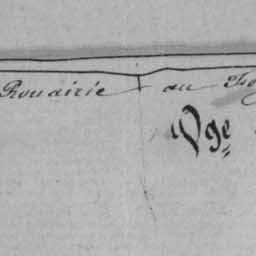 Rouairié au
Vge